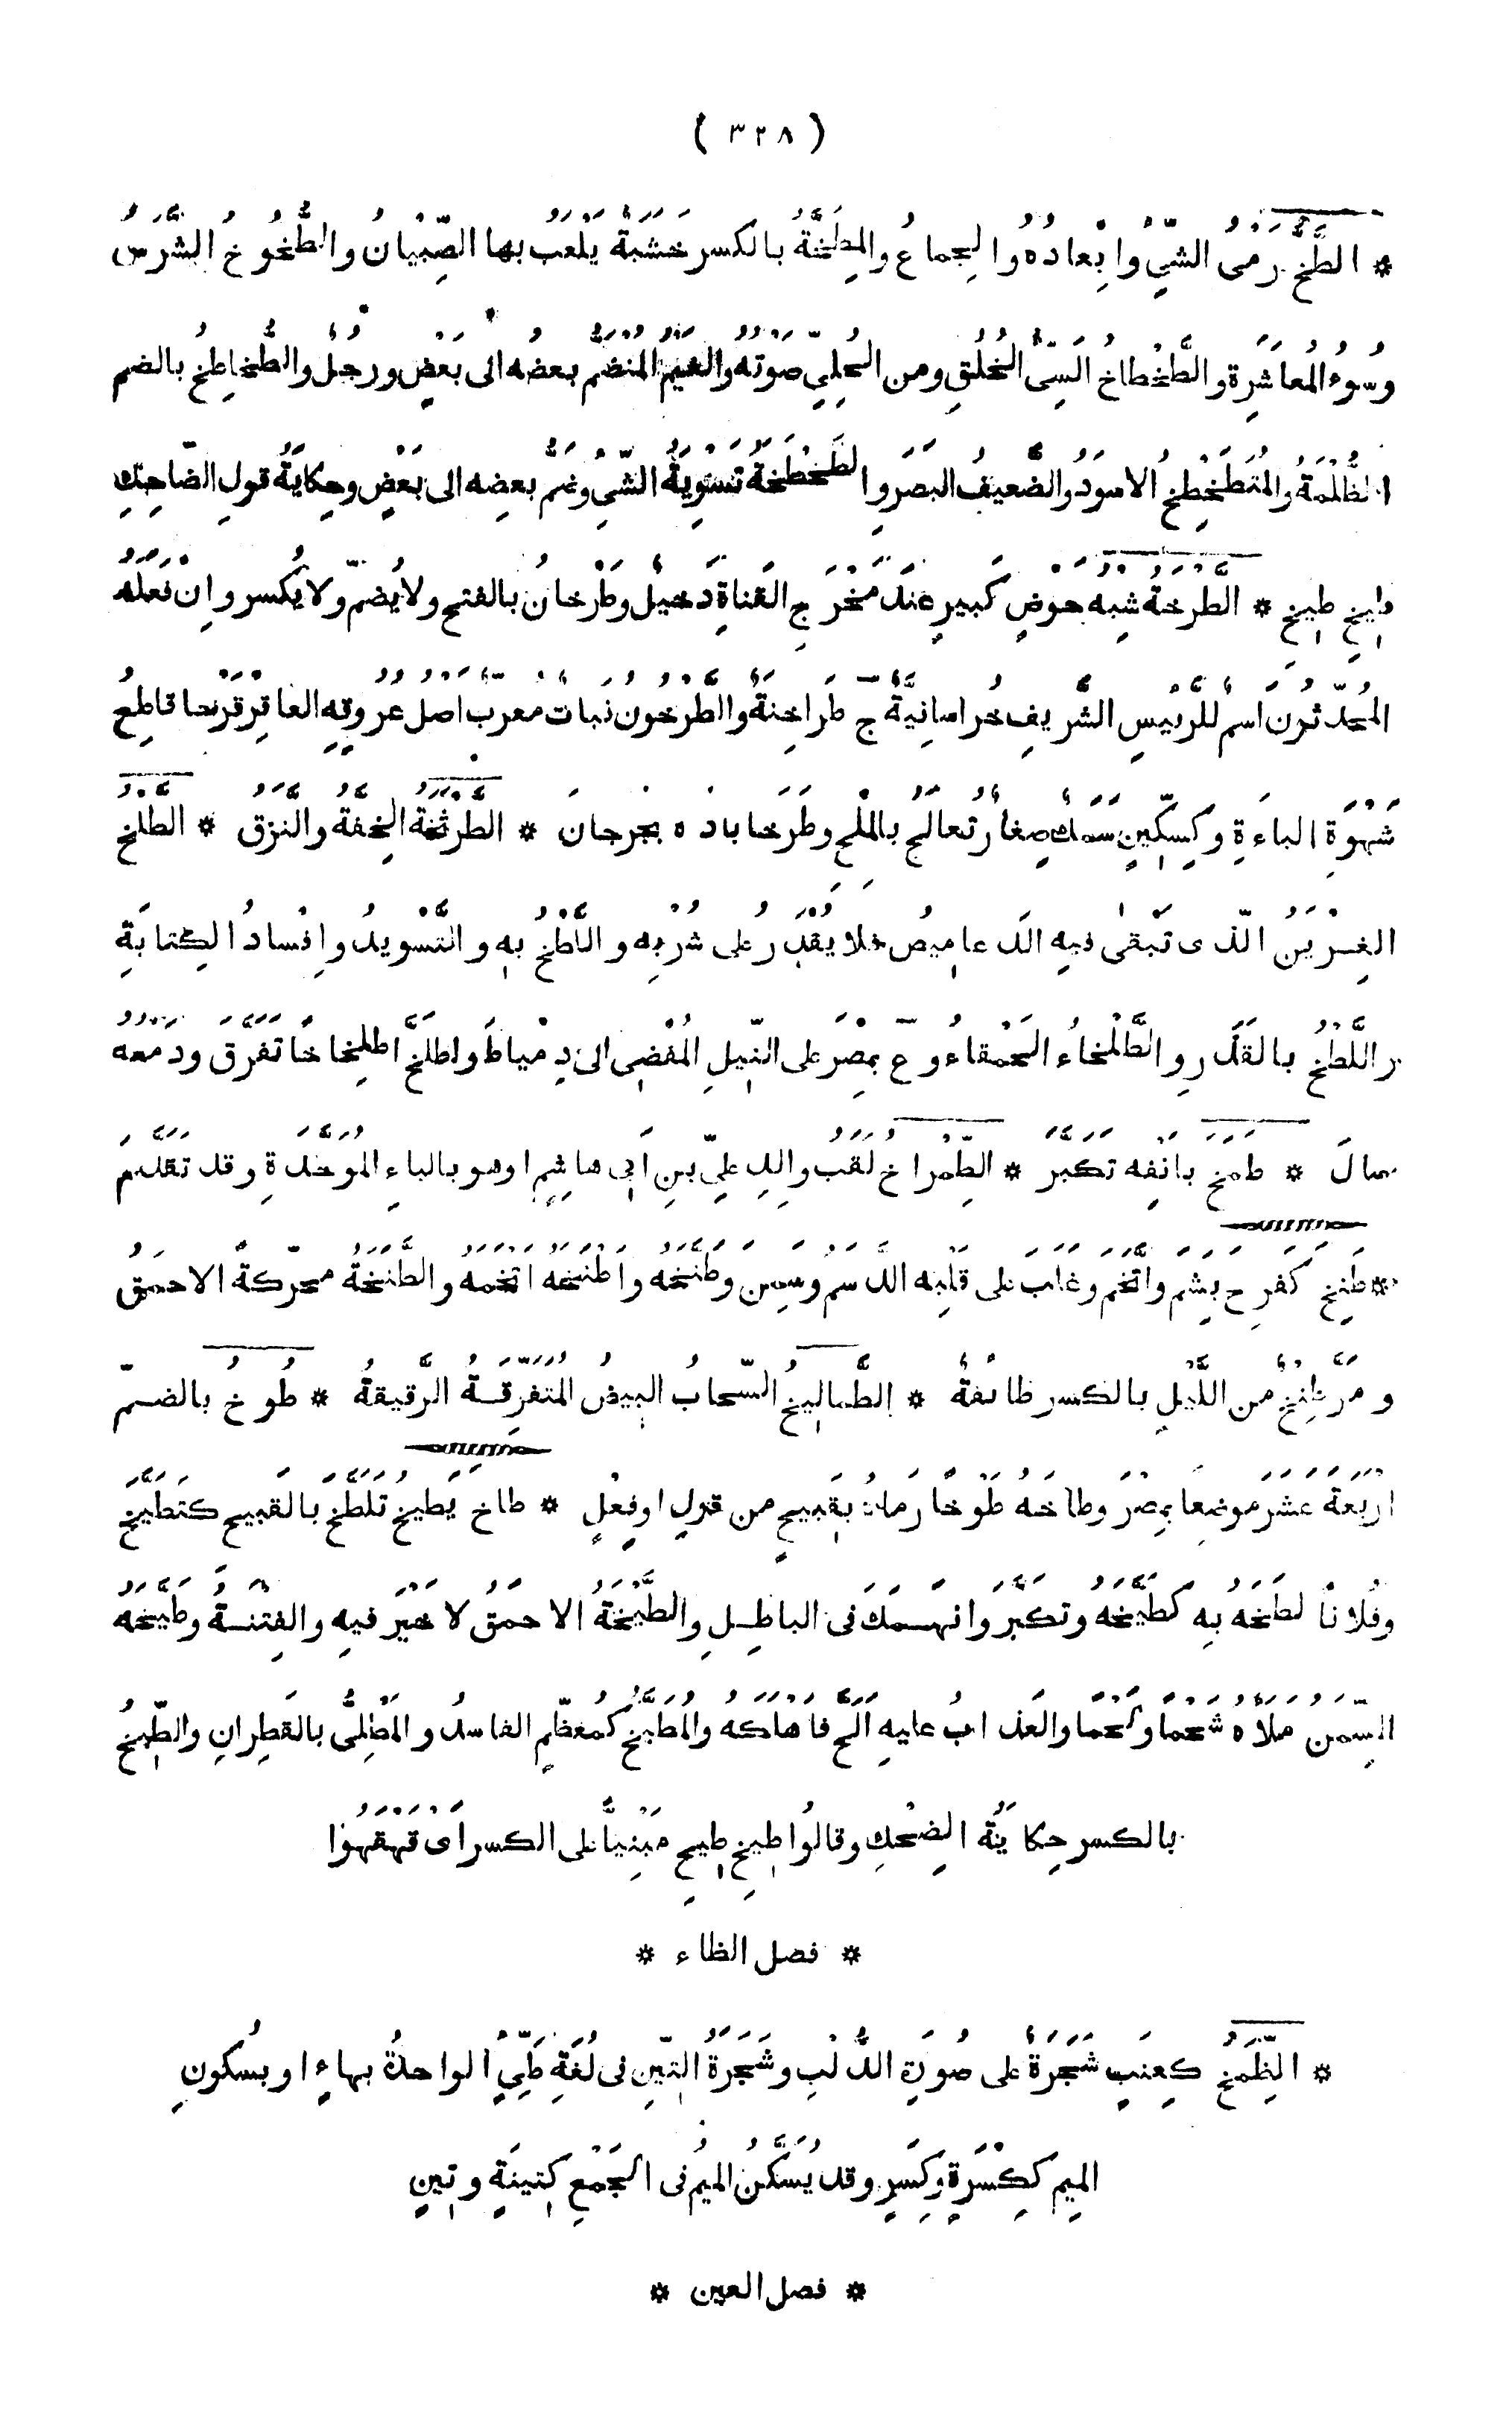 ( ٣٢٨ )
* الطَّخُّ رَمْىُ الشَّىْءِ وَاِبْعَادُهُ وَالجِماعُ وَالمِطَخَّةُ بالكسرِ خَشَبَةٌ يَلْعَبُ بها الصِّبْيانُ والطُّخُوخُ الشَّرَسُ
وسُوءُ المُعاشَرَةِ والطَّخْطاخُ السَّيِّئُ الخُلُقِ ومن الحُلِيِّ صَوْتُهُ والغَيْمُ المُنْضَمُّ بعضُه الى بَعْضٍ ورَجُلٌ والطُّخاطِخُ بالضم
الظُّلْمَةُ والمُتَطَخْطِخُ الاَسْوَدُ والضَّعيفُ البَصَرِ والطَّخْطَخَةُ تَسْوِيَةُ الشَّىْءِ وضَمُّ بعضِه الى بَعْضٍ وحِكايَةُ قولِ الضّاحِكِ
طِيخِ طِيخِ * الطَّرْخَةُ شِبْهُ حَوْضٍ كَبيرٍ عِنْدَ مَخْرَجِ القَناةِ دَخيلٌ وطَرْخانُ بالفتحِ ولا يُضَمُّ ولا يُكْسَرُ واِنْ فَعَلَهُ
المُحَدِّثُونَ اسْمٌ للرَّئيسِ الشَّريفِ خُراسانِيَّةٌ ج طَراخِنَةٌ والطَّرْخُونُ نَباتٌ معرب اَصْلُ عُروقِهِ العاقِرْقَرْحا قاطِعُ
شَهْوَةِ الباءَةِ وكسِكِّينٍ سَمَكٌ صِغارٌ تُعالَجُ بالمِلْحِ وطَرَخاباذُ ه بجُرجانَ * الطَّرْثَخَةُ الخِفَّةُ والنَّزَقُ * الطَّلْخُ
الغِرْيَنُ الَّذى تَبْقَى فيه الدَّعاميصُ فلا يُقْدَرُ على شُرْبِه واللَّطْخُ بِهِ والتَّسْويدُ واِفْسادُ الكِتابَةِ
واللَّطْخُ بالقَذَرِ والطَّلْخاءُ الحَمْقاءُ وع بمِصْرَ على النِّيلِ المُفْضِى الى دِمْياطَ واطْلَخَّ اطْلِخاخًا تَفَرَّقَ ودَمْعُهُ
سالَ * طَمَخَ بانْفِه تَكَبَّرَ * الطِّمْراخُ لَقَبُ والِدِ علىِّ بنِ اَبى هاشِمٍ اوهو بالباءِ المُوَحَّدَةِ وقد تَقَدَّمَ
* طَنِخَ كفَرِحَ بَشِمَ واتَّخَمَ وغَلَبَ على قَلْبِه الدَّسَمُ وسَمِنَ وطَنَّخَهُ واَطْنَخَهُ اَتْخَمَهُ والطَّنَخَةُ محرّكةً الاحمَقُ
ومَرَّ طِنْخٌ من اللَّيلِ بالكسر طائفةٌ * الطَّماليخُ السَّحابُ البِيضُ المُتَفَرِّقَةُ الرَّقيقةُ * طُوخُ بالضمّ
اَرْبَعَةَ عَشَرَ موضِعًا بمِصْرَ وطاخَهُ طَوْخًا رَماهُ بقَبيحٍ من قولٍ اوفِعْلٍ * طاخَ يَطيخُ تَلَطَّخَ بالقبيحِ كتَطَيَّخَ
وفُلانًا لَطَخَهُ بِهِ كطَيَّخَهُ وتَكَبَّرَ وانهَمَكَ فى الباطِلِ والطَّيْخَةُ الاحمَقُ لا خَيْرَ فيهِ والفِتْنَةُ وطَيَّخَهُ
السِّمَنُ مَلَاَهُ شَحْمًا ولَحْمًا والعَذابُ عليهِ اَلَحَّ فاَهْلَكَهُ والمُطَيَّخُ كمُعَظَّمٍ الفاسدُ والمَطْلِىُّ بالقَطِرانِ والطِّيخُ
بالكسر حِكايَةُ الضِّحْكِ وقالُوا طِيخِ طِيخِ مَبْنِيًّا على الكسر اَىْ قَهْقَهُوا
* فصل الظاء *
* الظِّمَخُ كعِنَبٍ شَجَرَةٌ على صُورَةِ الدُّلْبِ وشَجَرَةُ التِّينِ فى لُغَةِ طَيِّئٍ الواحدةُ بهاءٍ او بسُكونِ
الميم كَكِسْرَةٍ وكِسَرٍ وقد يُسَكَّنُ الميمُ فى الجَمْعِ كتِينَةٍ وتِينٍ
* فصل العين *